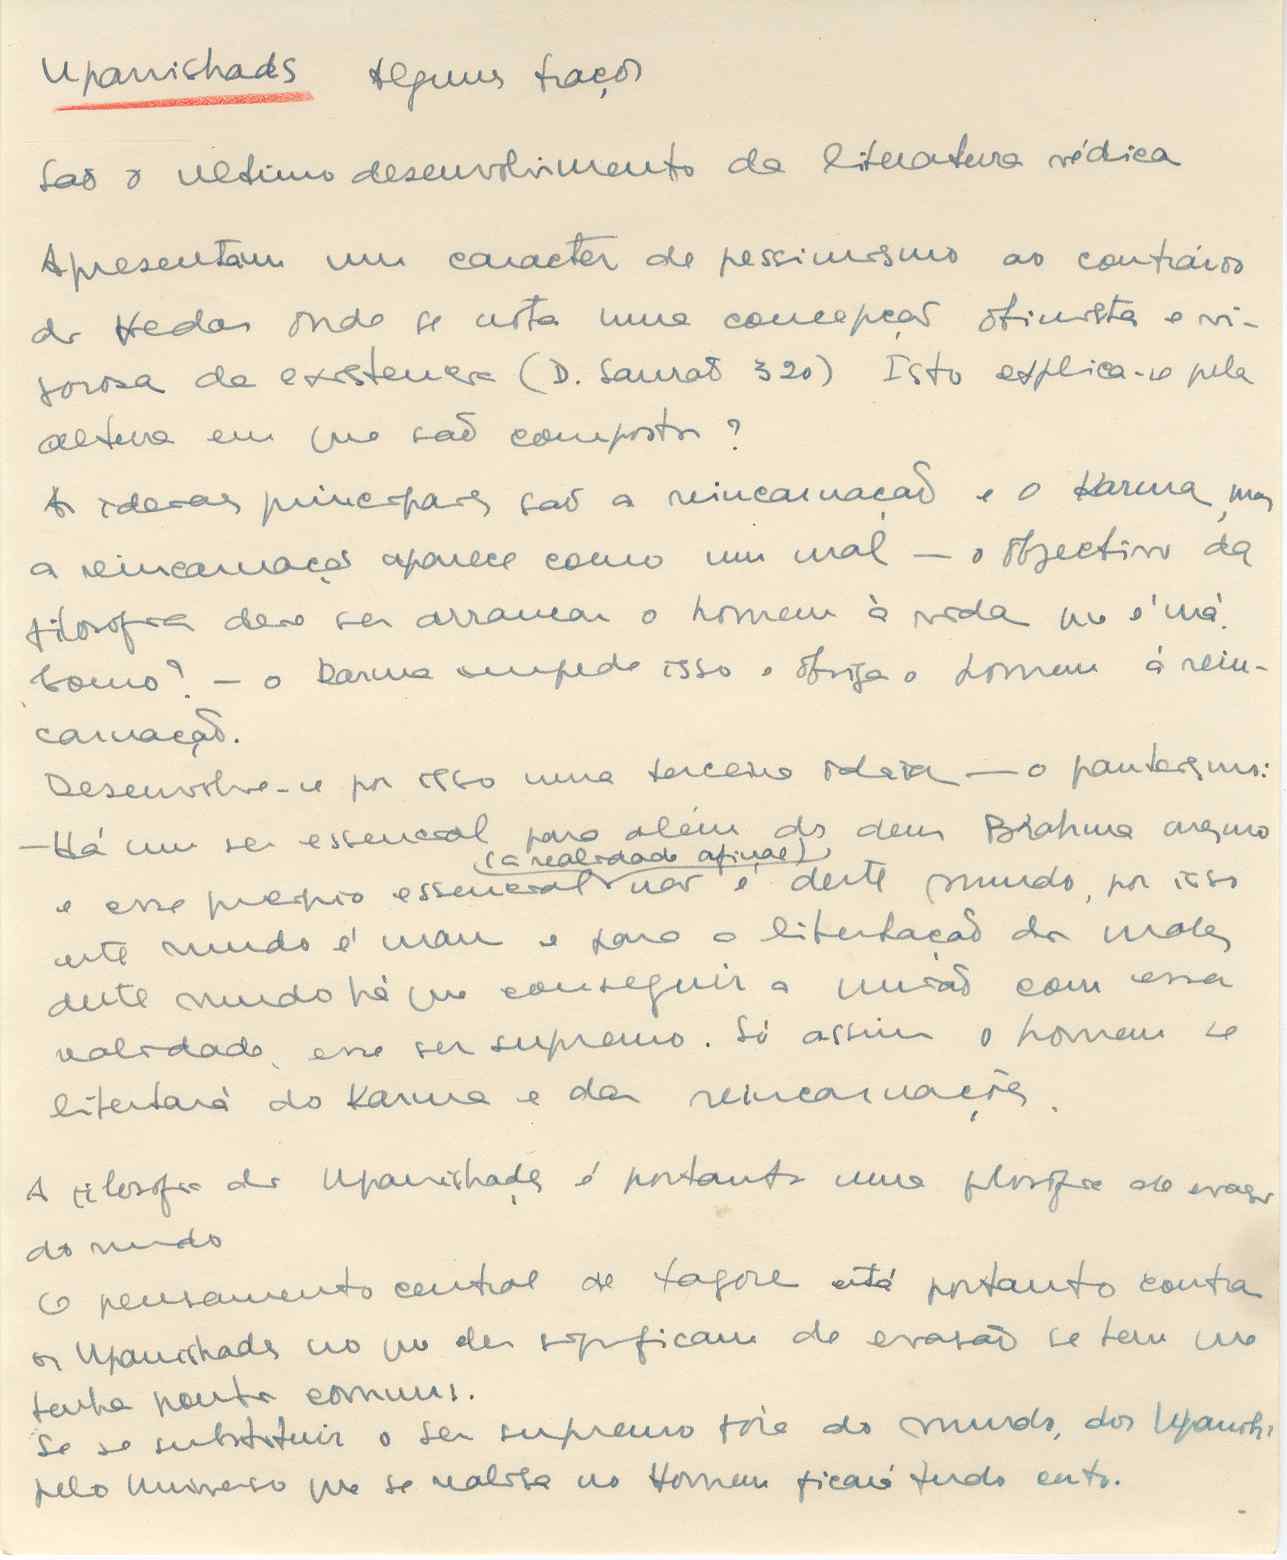 Upanishads Alguns traços
São o ultimo desenvolvimento da literatura védica
Apresentam um caracter de pessimismo ao contrário
dos Vedas onde se nota uma concepção otimista e vi-
gorosa da existencia (D. Saurat 320) Isto explica-se pela
altura em que são compostos?
As ideias principais são a reincarnação e o Karma, mas
a reincarnação aparece como um mal — o objectivo da
filosofia deve ser arrancar o homem à vida que é má.
Como? — o Karma impede isso e obriga o homem á rein-
carnação.
Desenvolve-se por isso uma terceira ideia — o panteismo:
— Há um ser essencial para além do deus Brahma mesmo
e esse proprio essencial (a realidade afinal) não é deste mundo, por isso
este mundo é mau e para a libertação dos males
deste mundo há que conseguir a união com essa
realidade, esse ser supremo. Só assim o homem se
libertará do Karma e das reincarnações.
A filosofia dos Upanishads é portanto uma filosofia de evasão
do mundo
O pensamento central de Tagore está portanto contra
os Upanishads no que eles significam de evasão se bem que
tenha pontos comuns.
Se se substituir o Ser supremo fora do mundo, dos Upanish.
pelo Universo que se realiza no Homem ficará tudo certo.